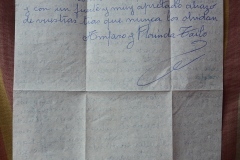 y con un fuerte y muy apretado abrazo
de vuestras tías que nunca los olvidan
Amparo y Florinda